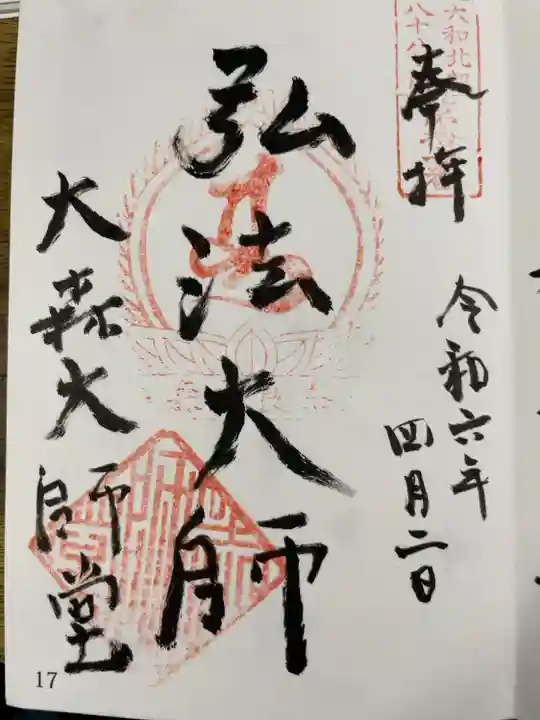 大和北部
八十八
奉拝
令和六年
四月二日
弘法大師
大森大師堂
17